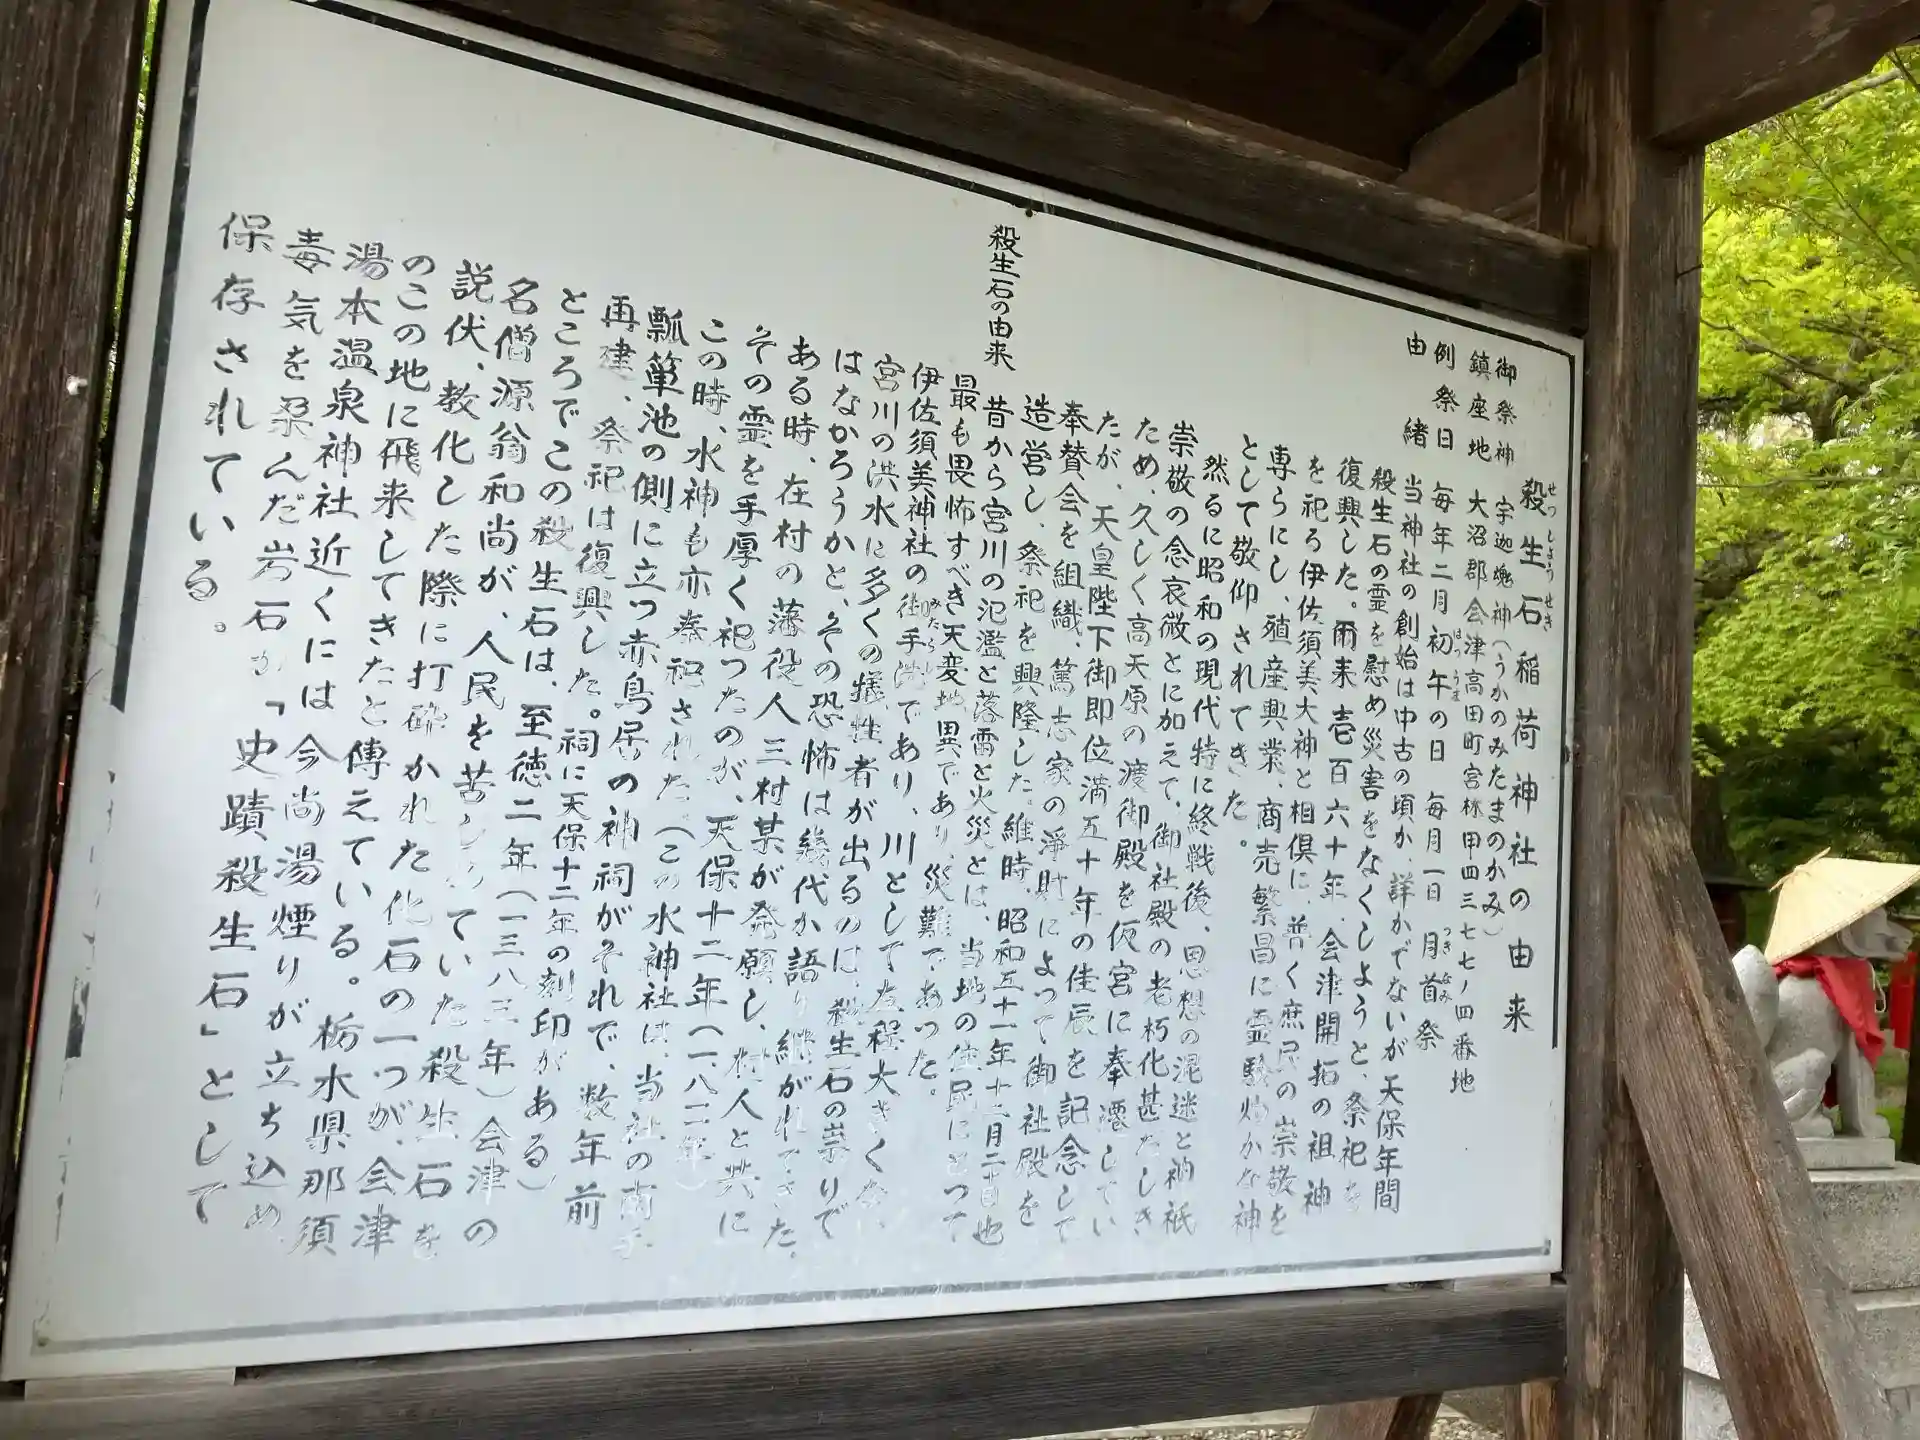 殺生石稲荷神社の由来
せつしようせき
御祭神 宇迦魂神(うかのみたまのかみ)
鎮座地 大沼郡会津高田町宮林甲四三七七ノ四番地
例祭日 毎年二月初午の日 毎月一日 月首祭
はつうま
つきなみ
由緒 当神社の創始は中古の頃か、詳かでないが天保年間
殺生石の霊を慰め災害をなくしようと、祭祀を
復興した。爾来壱百六十年、会津開拓の祖神
を祀ろ伊佐須美大神と相倶に、普く庶民の崇敬を
専らにし、殖産興業、商売繁昌に霊験灼かな神
として敬仰されてきた。
然るに昭和の現代特に終戦後、思想の混迷と神祇
崇敬の念哀微とに加えて、御社殿の老朽化甚だしき
ため、久しく高天原の渡御殿を仮宮に奉遷してい
たが、天皇陛下御即位満五十年の佳辰を記念して
奉賛会を組織、篤志家の浄財によって御社殿を
造営し、祭祀を興隆した。維時、昭和五十一年十二月二十日也
殺生石の由来
昔から宮川の氾濫と落雷と火災とは、当地の住民にとって
最も畏怖すべき天変地異であり、災難であつた。
伊佐須美神社の御手洗であり、川としてた程大きく
みたらし
宮川の洪水に多くの犠牲者が出るのは、殺生石の祟りで
はなかろうかと、その恐怖は幾代か語り継がれてきた。
ある時、在村の藩役人三村某が発願し、村人と共に
その霊を手厚く祀つたのが、天保十二年(一八二年)
この時、水神も亦奉祀された。(この水神社は、当社の南手
瓢箪池の側に立つ赤鳥居の神祠がそれで、数年前
再建、祭祀は復興した。祠に天保十二年の刻印がある)
ところでこの殺生石は、至徳二年(一三八三年)会津の
名僧源翁和尚が、人民を苦しめていた殺生石を
説伏、教化した際に打砕かれた化石の一つが、会津
のこの地に飛来してきたと傳えている。栃木県那須
湯本温泉神社近くには今尚湯煙りが立ち込め
毒気を孕んだ岩石が「史蹟殺生石」として
保存されている。